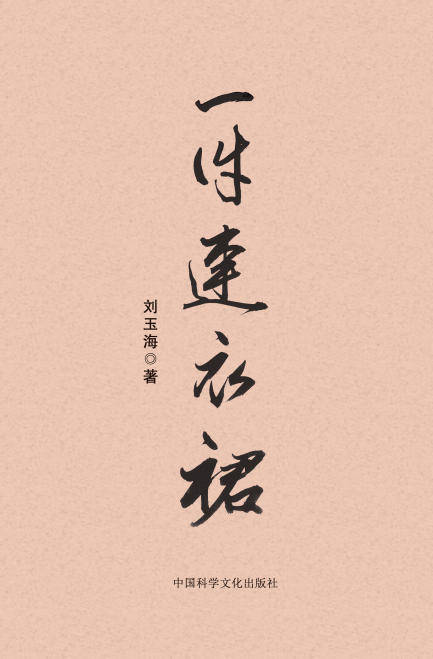 一件连衣裙
刘玉海◎著
中国科学文化出版社